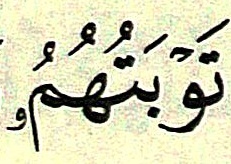 تَوْبَتُهُمُۥ